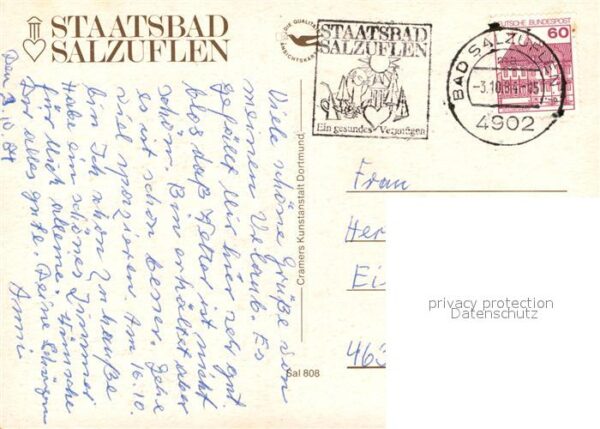 STAATSBAD
SALZUFLEN
DIE QUALITÄTS
ANSICHTSKARTE
STAATSBAD
SALZUFLEN
Ein gesundes Vergnügen
DEUTSCHE BUNDESPOST
60
BAD SALZUFLEN
-3.10.84-
4902
Den 2.10.84
Viele schöne Grüße von
meinem Urlaub. Es
gefällt mir hier sehr gut
blos daß Wetter ist nicht
schön. Bin erkältet aber
es ist schon besser. Gehe
viel spazieren. Am 16.10.
bin Ich schon zu hauße
Habe ein schönes Zimmer
für mich alleine. Wünsche
Dir alles gute. Deine
Anni
Cramers Kunstanstalt Dortmund
Sal 808
Frau
Her
Ei
463
privacy protection
Datenschutz